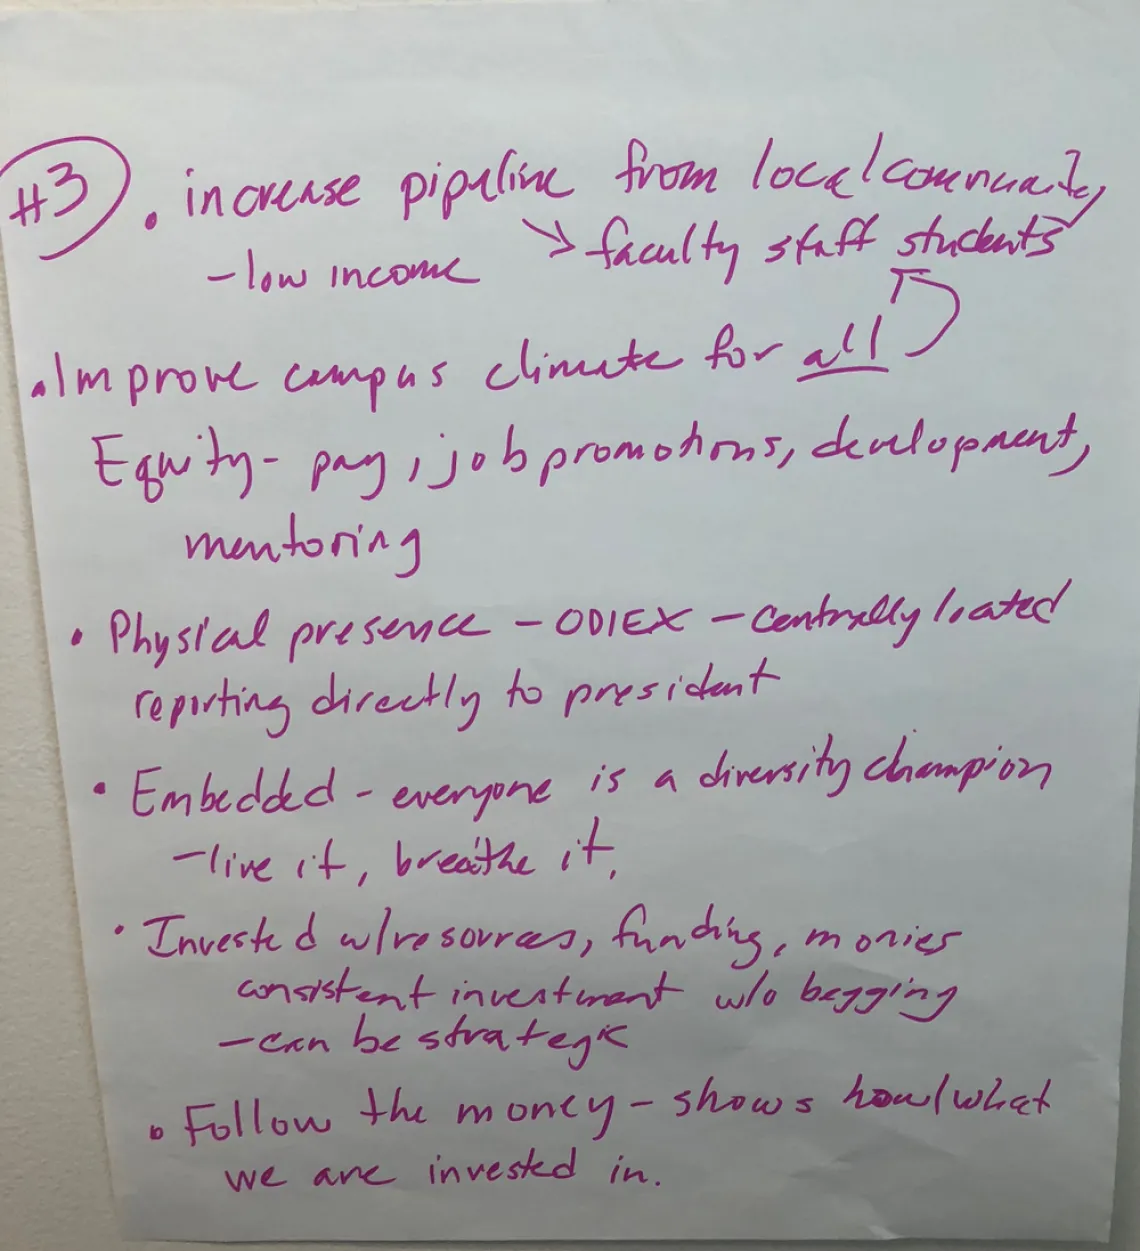 #3
• increase pipeline from local community
- low income → faculty staff students
• Improve campus climate for all
Equity - pay, job promotions, development,
mentoring
• Physical presence - ODIEX - centrally located
reporting directly to president
• Embedded - everyone is a diversity champion
- live it, breathe it.
• Invested w/resources, funding, monies
consistent investment w/o begging
- can be strategic
• Follow the money - shows how/what
we are invested in.